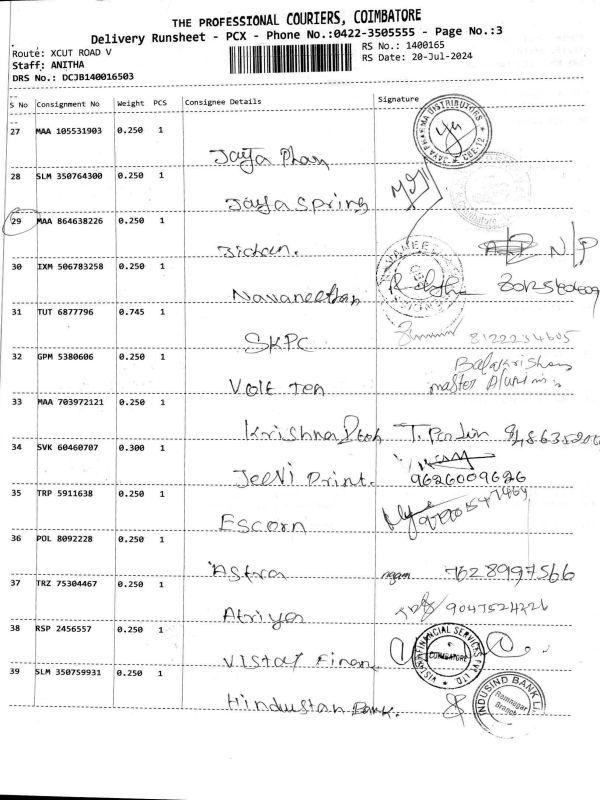 THE PROFESSIONAL COURIERS, COIMBATORE
Delivery Runsheet - PCX - Phone No.:0422-3505555 - Page No.:3
Route: XCUT ROAD V
RS No.: 1400165
Staff: ANITHA
RS Date: 20-Jul-2024
DRS No.: DCJB140016503
S No Consignment No Weight PCS Consignee Details Signature
27 MAA 105531903 0.250 1
JAYA PHARMA DISTRIBUTORS ★ CBE-12 ★
Jaya Pham
28 SLM 350764300 0.250 1
Jaya Spring
29 MAA 864638226 0.250 1
N/P
30 IXM 506783258 0.250 1
Navaneethan
31 TUT 6877796 0.745 1
SKPC
8122234605
32 GPM 5380606 0.250 1
Balakrishan
Volt Ten
master
33 MAA 703972121 0.250 1
Krishna
34 SVK 60460707 0.300 1
Jeevi Print.
9626009626
35 TRP 5911638 0.250 1
Escorn
36 POL 8092228 0.250 1
Astra
7628997566
37 TRZ 75304467 0.250 1
Atriya
9047524226
38 RSP 2456557 0.250 1
Vistay Financ
VISTAAR FINANCIAL SERVICES PVT LTD. ★ COIMBATORE
39 SLM 350759931 0.250 1
Hindustan Bank.
INDUSIND BANK LT
Ramnagar
Branch